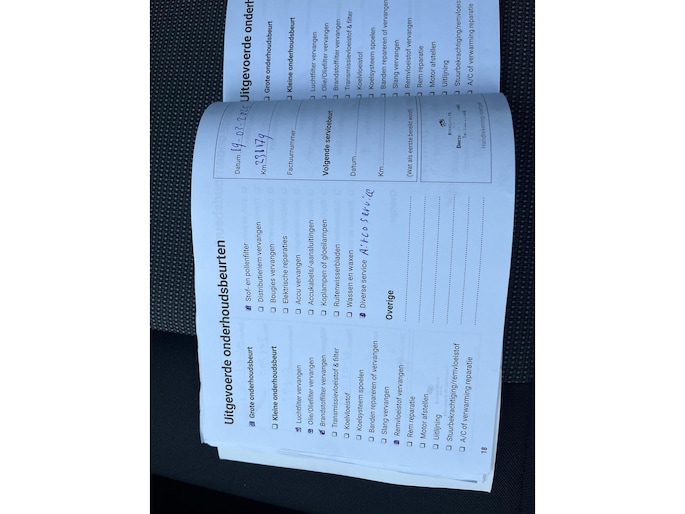 Uitgevoerde onderhoudsbeurten
Grote onderhoudsbeurt
Kleine onderhoudsbeurt
Luchtfilter vervangen
Olie/Oliefilter vervangen
Brandstoffilter vervangen
Transmissievloeistof & filter
Koelvloeistof
Koelsysteem spoelen
Banden repareren of vervangen
Slang vervangen
Remvloeistof vervangen
Rem reparatie
Motor afstellen
Uitlijning
Stuurbekrachtiging/remvloeistof
A/C of verwarming reparatie
18
Stof- en pollenfilter
Distributieriem vervangen
Bougies vervangen
Elektrische reparaties
Accu vervangen
Accukabels/-aansluitingen
Koplampen of gloeilampen
Ruitenwisserbladen
Wassen en waxen
Diverse service Airco service
Overige
Datum
Km
Factuurnummer
Volgende servicebeurt
Datum
Km
(Wat als eerste bereikt wordt)
Uitgevoerde onderhoudsbeurt
Grote onderhoudsbeurt
Kleine onderhoudsbeurt
Luchtfilter vervangen
Olie/Oliefilter vervangen
Brandstoffilter vervangen
Transmissievloeistof & filter
Koelvloeistof
Koelsysteem spoelen
Banden repareren of vervangen
Slang vervangen
Remvloeistof vervangen
Rem reparatie
Motor afstellen
Uitlijning
Stuurbekrachtiging/remvloeis
A/C of verwarming repara